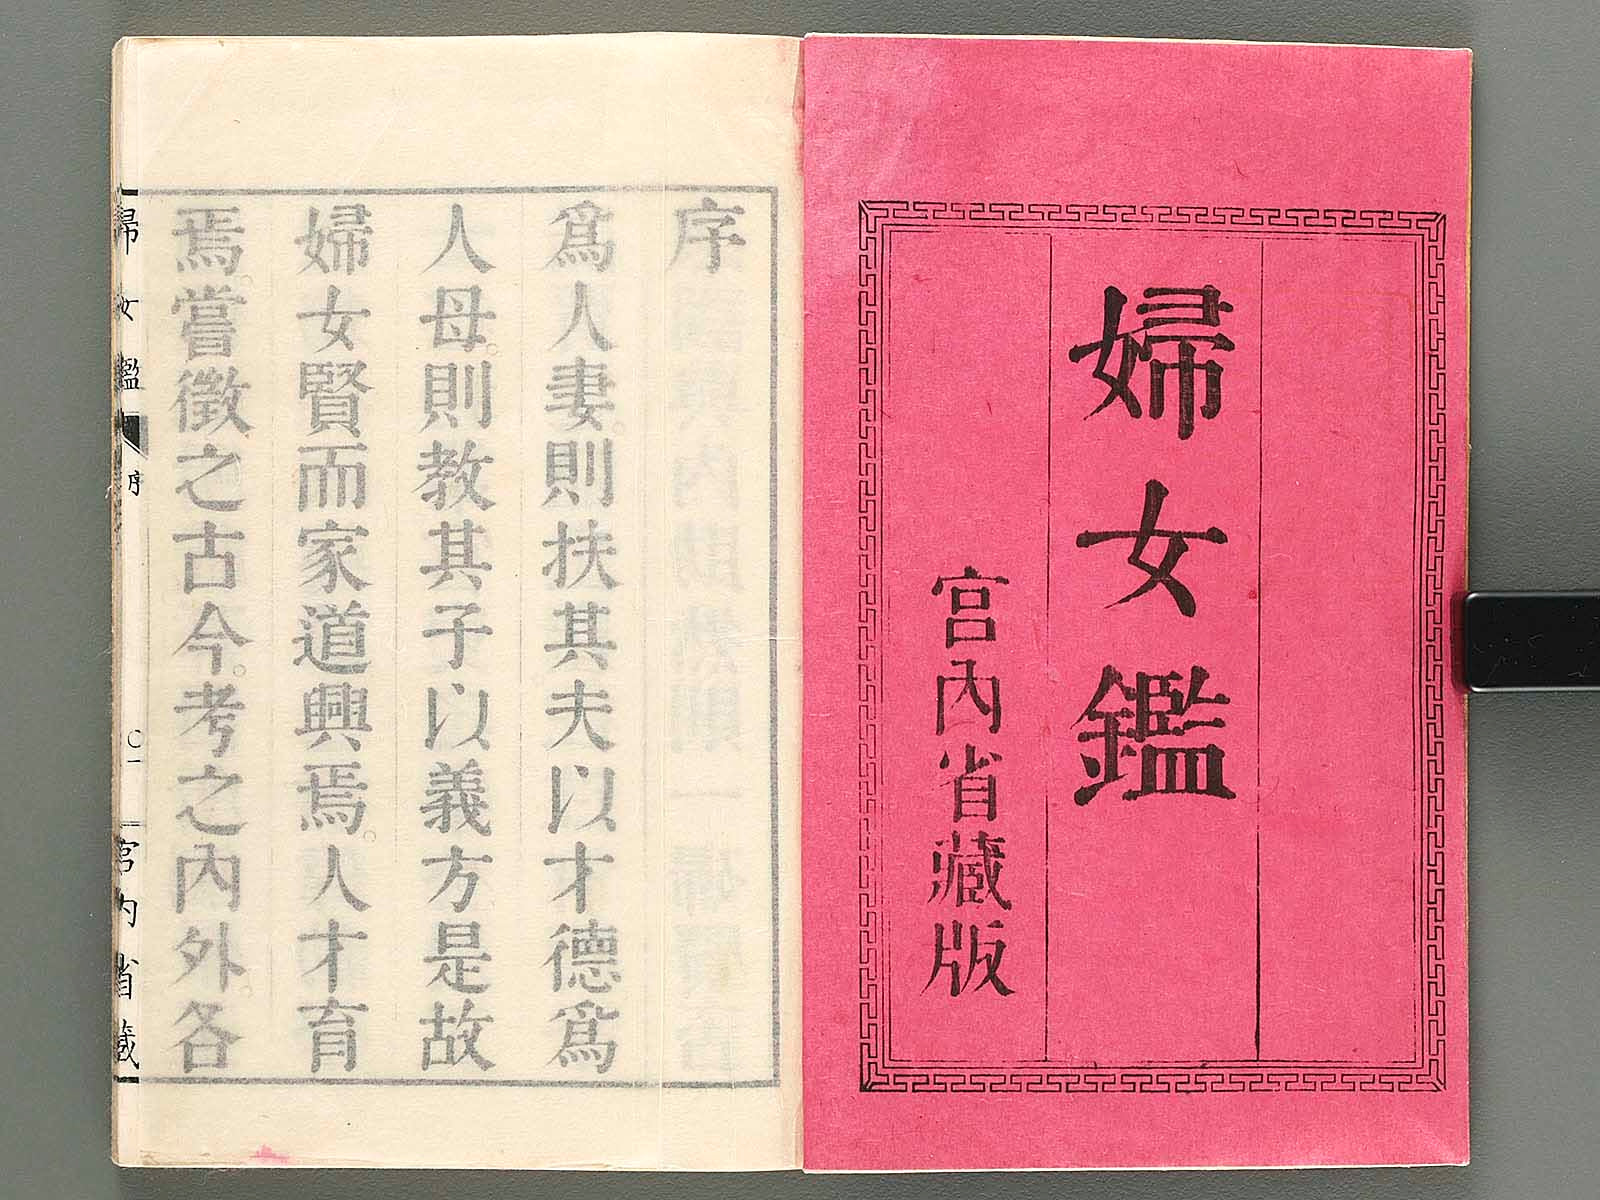 婦女鑑
宮內省藏版
序
爲人妻。則扶其夫以才德爲
人母。則教其子以義方是故
婦女賢而家道興焉。人才育
焉。嘗徵之古今。考之內外。各
婦女鑑
序
〇一
宮內省藏